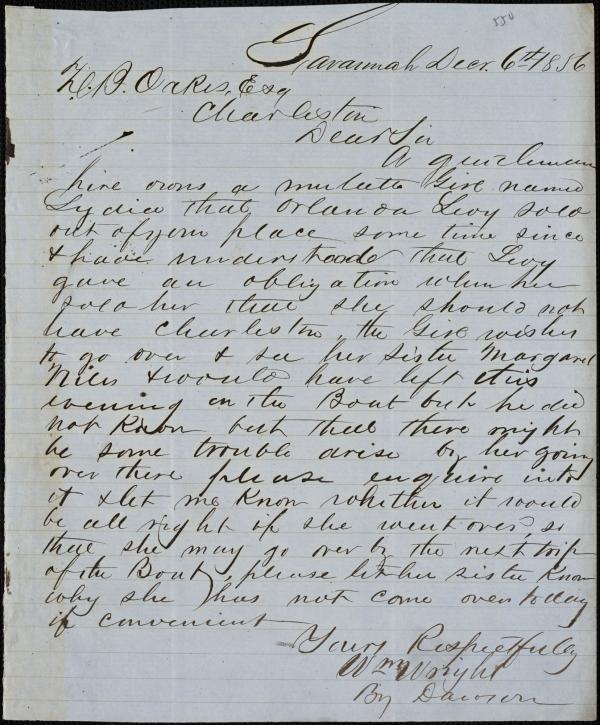 550
Savannah Decr. 6th 1856
Z. B. Oakes, Esq
Charleston
Dear Sir
A gentleman
here owns a mulatto Girl named
Lydia that Orlando Levy sold
out of your place some time since
& have understood that Levy
gave an obligation when he
sold her that she should not
leave Charleston, the Girl wishes
to go over & see her sister Margaret
& would have left this
evening on the Boat but he did
not know but that there might
be some trouble arise by her going
over there please enquire into
it & let me know whether it would
be all right if she went over, so
that she may go over by the next trip
of the Boat, please let her sister know
why she has not come over today
if convenient
Yours Respectfully
Wm Wright
By Dawson